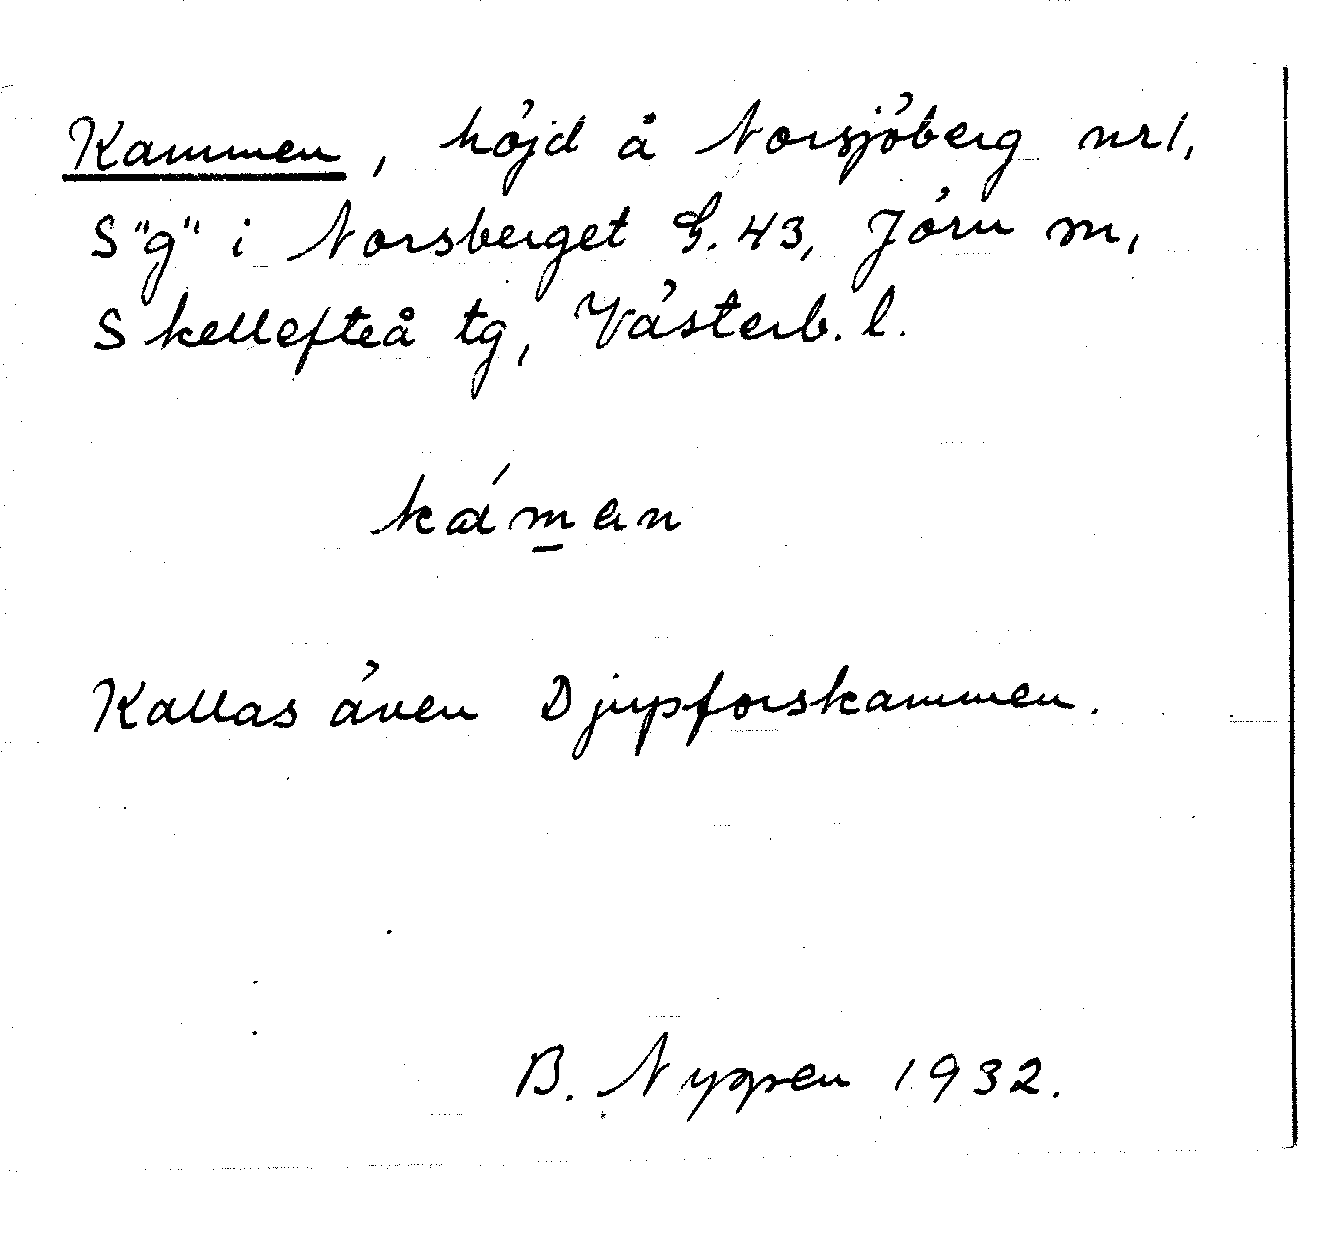 Kammen, höjd å Norsjöberg nr1,
S "g" i Norsberget G. 43, Jörn m,
Skellefteå tg, Västerb. l.
káman
Kallas även Djupforskammen.
B. Nygren 1932.